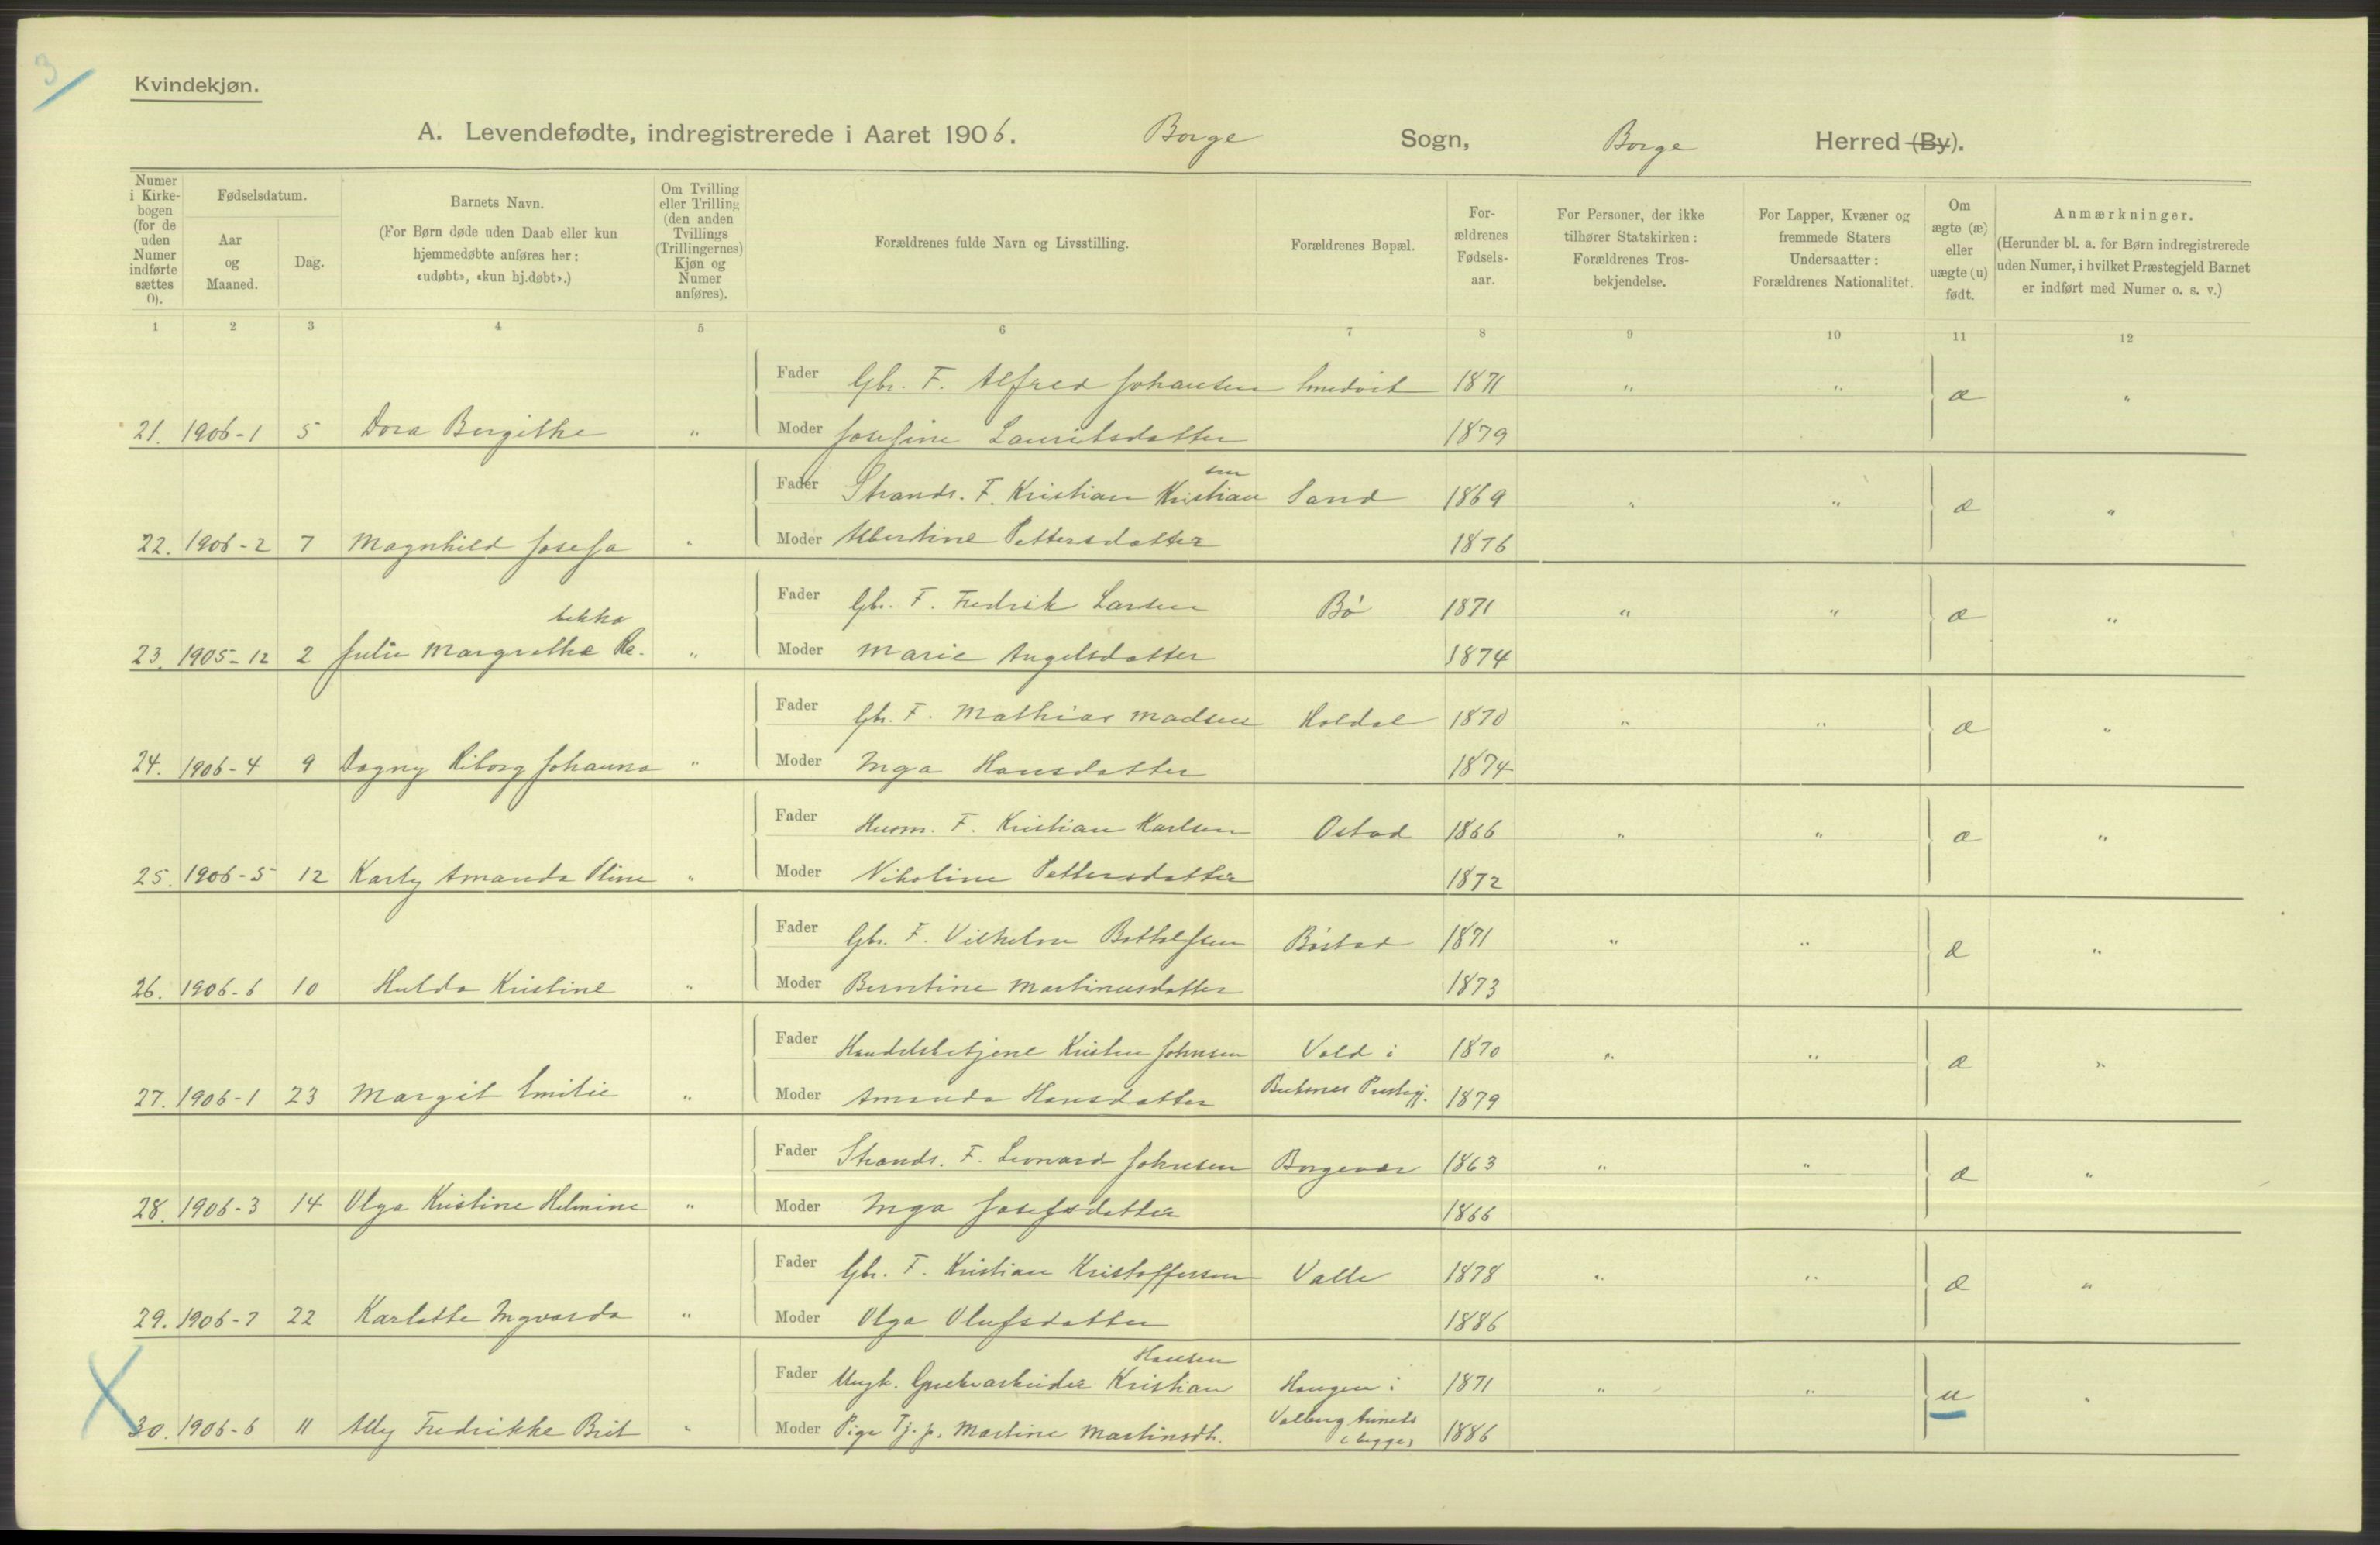 3
Kvindekjøn.
A. Levendefødte, indregistrerede i Aaret 1906. Borge Sogn, Borge Herred (By).
Numer i Kirkebogen (for de uden Numer indførte sættes 0).
Fødselsdatum.
Aar og Maaned.
Dag.
Barnets Navn.
(For Børn døde uden Daab eller kun hjemmedøbte anføres her: «udøbt», «kun hj.døbt».)
Om Tvilling eller Trilling (den anden Tvillings (Trillingernes) Kjøn og Numer anføres).
Forældrenes fulde Navn og Livsstilling.
Forældrenes Bopæl.
Forældrenes Fødselsaar.
For Personer, der ikke tilhører Statskirken: Forældrenes Trosbekjendelse.
For Lapper, Kvæner og fremmede Staters Undersaatter: Forældrenes Nationalitet.
Om ægte (æ) eller uægte (u) født.
Anmærkninger.
(Herunder bl. a. for Børn indregistrerede uden Numer, i hvilket Præstegjeld Barnet er indført med Numer o. s. v.)
1 2 3 4 5 6 7 8 9 10 11 12
Fader Gbr. F. Alfred Johansen Smedvik 1871 " " æ "
21. 1906-1 5 Dora Bergithe " Moder Josefine Lauritsdatter 1879
sen
Fader Strands. F. Kristian Kristian Sand 1869 " " æ "
22. 1906-2 7 Magnhild Josefa " Moder Albertine Pettersdatter 1876
Fader Gbr. F. Fredrik Larsen Bø 1871 " " æ "
bekka
23. 1905-12 2 Julie Margrethe Re- " Moder Marie Angelsdatter 1874
Fader Gbr. F. Mathias Madsen Holdal 1870 " " æ "
24. 1906-4 9 Dagny Riborg Johanna " Moder Inga Hansdatter 1874
Fader Husm. F. Kristian Karlsen Ostad 1866 " " æ "
25. 1906-5 12 Karly Amanda Oline " Moder Nikoline Pettersdatter 1872
Fader Gbr. F. Vilhelm Bottolfsen Bøstad 1871 " " æ "
26. 1906-6 10 Hulda Kristine " Moder Berntine Martinusdatter 1873
Fader Handelsbetjent Kristen Johnsen Vold i 1870 " " æ "
27. 1906-1 23 Margit Emilie " Moder Amanda Hansdatter Buksnes Prestegj. 1879
Fader Strands. F. Leonard Johnsen Borgevær 1863 " " æ "
28. 1906-3 14 Olga Kristine Helmine " Moder Inga Josefsdatter 1866
Fader Gbr. F. Kristian Kristoffersen Valle 1878 " " æ "
29. 1906-7 22 Karlotte Ingvarda " Moder Olga Olufsdatter 1886
Hansen
Fader Ungk. Grubearbeider Kristian Haugen i 1871 " " u "
30. 1906-6 11 Ally Fredrikke Brit " Moder Pige Tj.p. Martine Martinsdt. Valberg 1886
(begge)